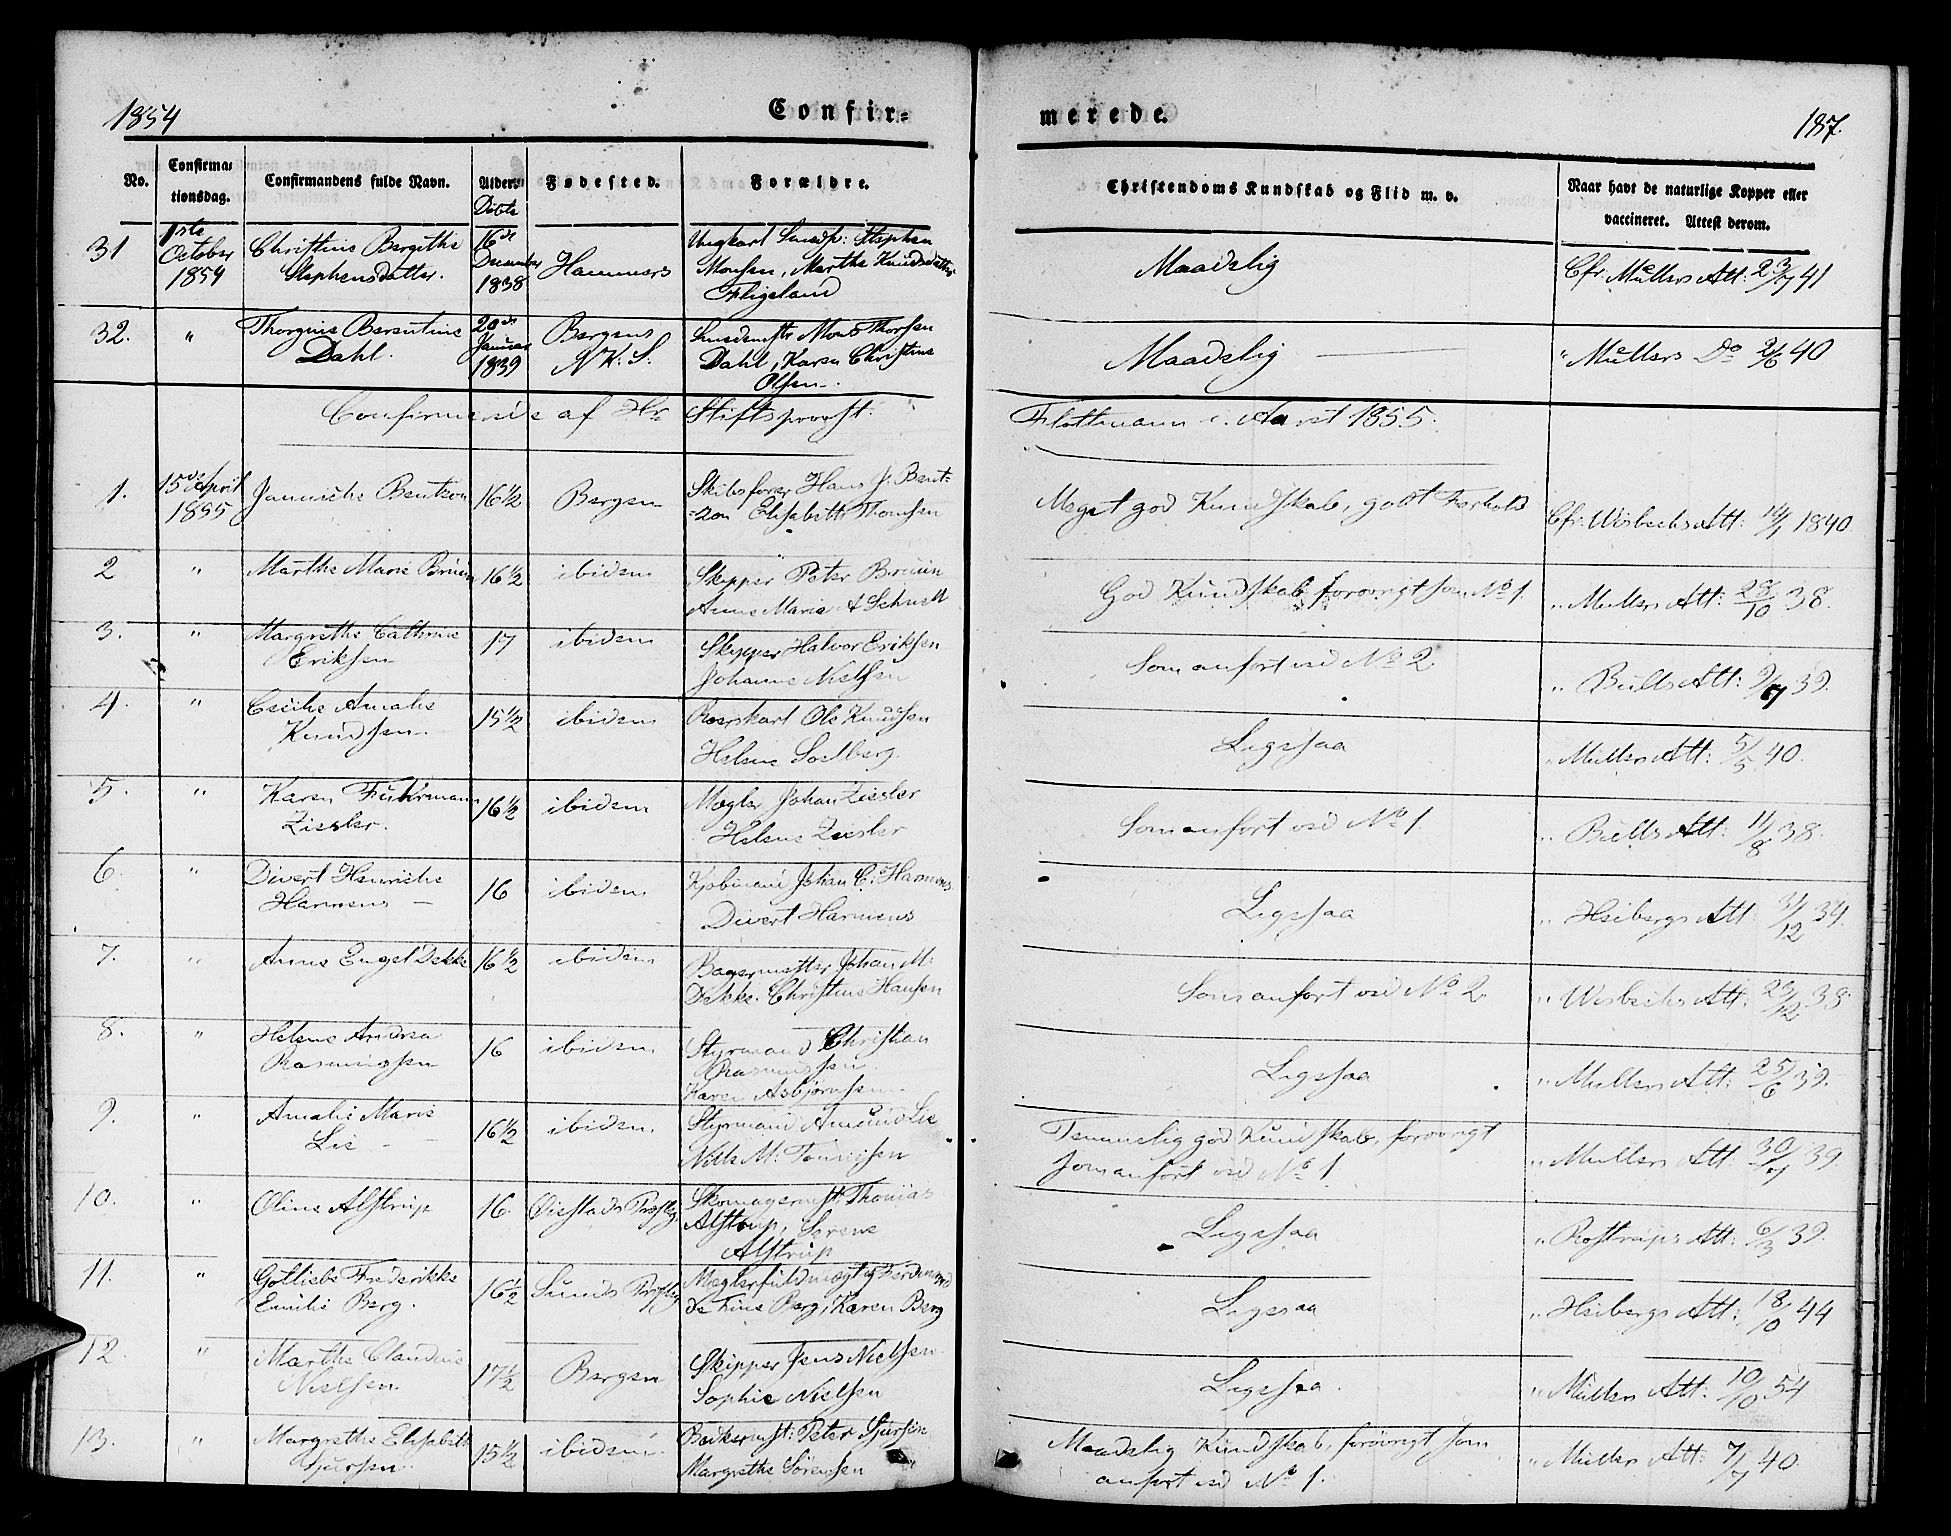 1854
Confir=
merede.
187.
No.
Confirma=
tionsdag.
Confirmandens fulde Navn.
Alder.
Døbte
Fødested.
Forældre.
Christendoms Kundskab og Flid m. v.
Naar havt de naturlige Kopper eller
vaccineret. Attest derom.
31
1ste
October
1854
Christine Bergithe
Stephensdatter.
16de
December
1838
Hammers
Ungkarl Stephen
Monsen, Marthe Knudsdatter
Fligeland
Maadelig
Cfr. Müllers Att: 23/7 41
32.
"
Thorgine Berentine
Dahl.
20de
Januar
1839
Bergens
N. K. S.
Mons Thorsen
Dahl, Karen Christine
Olsen
Maadelig
" Müllers Do 2/6 40
Confirmerede af Hr Stiftsprovst
Flottmann i Aaret 1855.
1.
15de April
1855
Janniche Bentzon
16 1/2
Bergen
Skibsfører Hans J. Bent-
-zon Elisabeth Thomsen
Meget god Kundskab, godt Forhold
Cfr. Wisbechs Att: 14/1 1840
2
"
Marthe Marie Bruun
16 1/2
ibidem
Skipper Peter Bruun
Anne Marie A Schnell
God Kundskab forøvrigt som No 1.
" Mullers Att: 28/10 38.
3.
"
Margrethe Cathrine
Eriksen
17
ibidem
Skipper Halvor Eriksen
Johanne Nielsen
Som anført ved No 2.
" Bulls Att: 9/7 39.
4.
"
Cecilie Amalie
Knudsen
15 1/2
ibidem
Ole Knudsen
Helene Soelberg.
Ligesaa
" Mullers Att: 5/5 40.
5.
"
Karen Fuhrmann
Ziesler.
16 1/2
ibidem
Mægler Johan Ziesler
Helene Ziesler
Som anført ved No 1.
" Bulls Att: 11/8 38.
6.
"
Divert Henriche
Harmens
16
ibidem
Kjøbmand Johan C. Harmens
Divert Harmens
Ligesaa
" Heibergs Att: 31/12 34.
7.
"
Anne Engel Dekke
16 1/2
ibidem
Bagermester Johan M:
Dekke. Christine Hansen
Som anført ved No 2.
" Wisbechs Att: 23/12 38
8.
"
Helene Andrea
Rasmussen
16
ibidem
Styrmand Christian
Rasmussen
Karen Asbjørnsen
Ligesaa
" Mullers Att: 25/6 39.
9.
"
Amalie Marie
Lie
16 1/2
ibidem
Styrmand Amund Lie
M. Tønnesen
Temmelig god Kundskab, forøvrigt
som anført ved No 1.
" Mullers Att: 30/7 39
10.
"
Oline Alstrup
16.
Øiestads Præstegj.
Skomagermstr Thomas
Alstrup, Sørene
Alstrup
Ligesaa
" Rostrups Att: 6/3 39.
11.
"
Gotliebe Frederikke
Emilie Berg.
16 1/2
Sunds Prstgj
Mæglerfuldmægtig Ferdinand
de Fine Berg, Karen Berg
Ligesaa
" Heibergs Att: 18/10 44
12.
"
Marthe Claudine
Nielsen
17 1/2
Bergen
Skipper Jens Nielsen
Sophie Nielsen
Ligesaa.
" Müllers Att: 10/10 54
13.
"
Margrethe Elisabeth
Sjursen.
15 1/2
ibidem
Peter Sjursen
Margrethe Sørensen
Maadelig Kundskab, forøvrigt som
anført ved No 1.
" Müllers Att: 7/7 40.